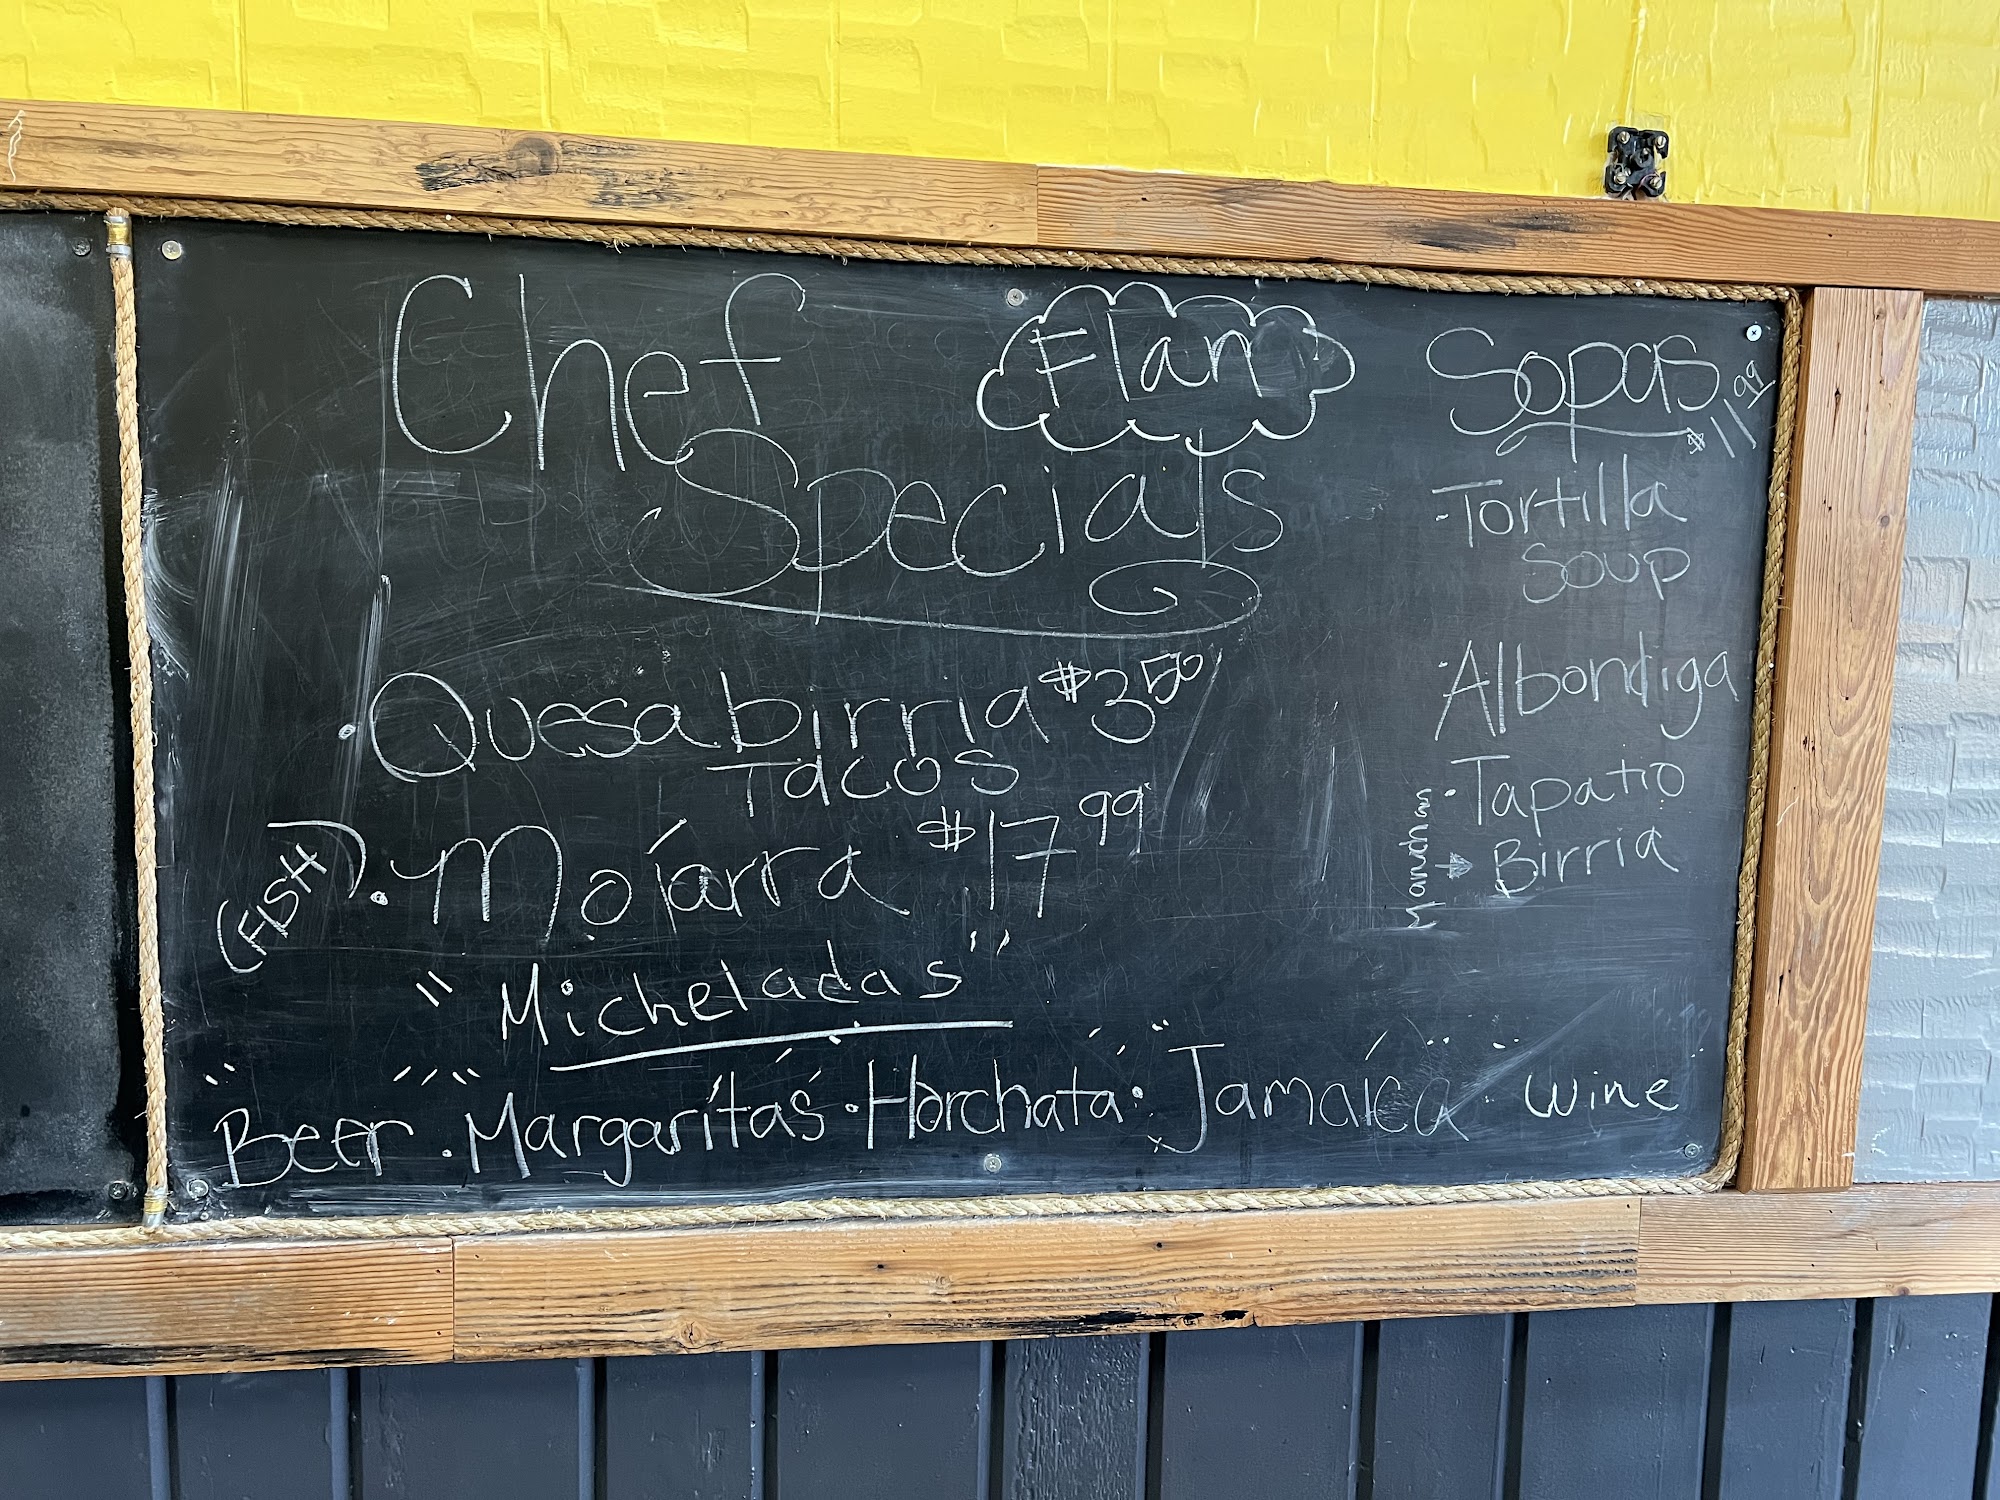 Chef
Specials
Flan
• Quesabirria $3 50
Tacos
(FISH) • Mojarra $17 99
"Micheladas"
Beer • Margaritas • Horchata • Jamaica • wine
Sopas $11 99
• Tortilla
Soup
• Albondiga
• Tapatio
Birria